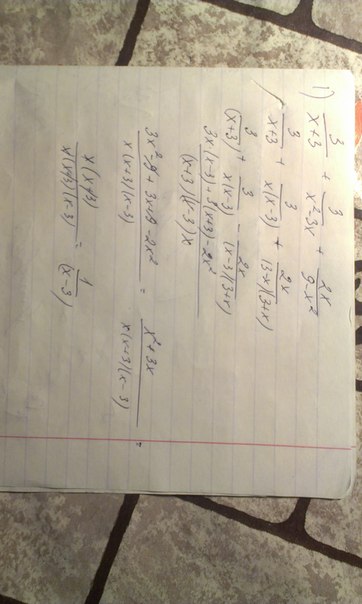 1) 3/(x+3) + 3/(x²-3x) + 2x/(9-x²)
3/(x+3) + 3/(x(x-3)) + 2x/((3-x)(3+x))
3/(x+3) + 3/(x(x-3)) - 2x/((x-3)(3+x))
(3x(x-3)+3(x+3)-2x²)/((x+3)(x-3)x)
= (x²+3x)/(x(x+3)(x-3)) =
x(x+3)/(x(x+3)(x-3)) = 1/(x-3)